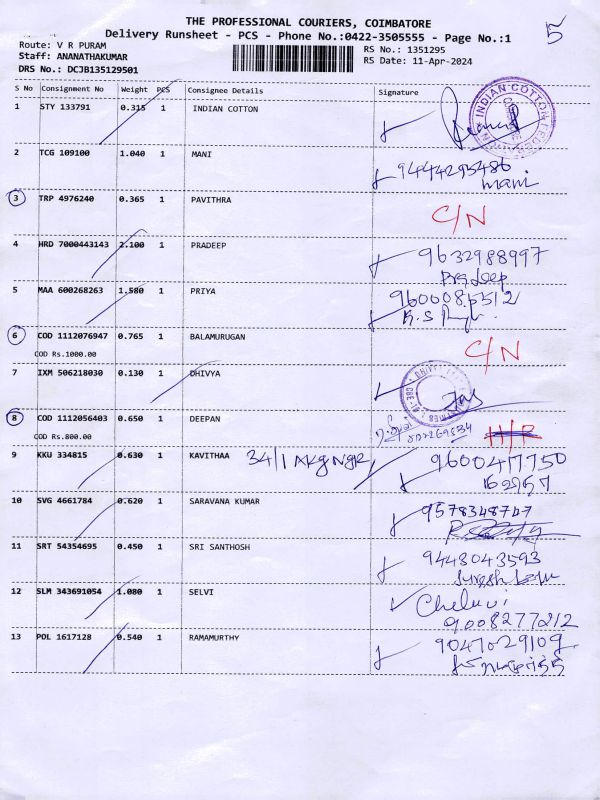 THE PROFESSIONAL COURIERS, COIMBATORE
5
Delivery Runsheet - PCS - Phone No.:0422-3505555 - Page No.:1
Route: V R PURAM
RS No.: 1351295
Staff: ANANATHAKUMAR
RS Date: 11-Apr-2024
DRS No.: DCJB135129501
S No Consignment No Weight PCS Consignee Details Signature
1 STY 133791 0.315 1 INDIAN COTTON
INDIAN COTTON
2 TCG 109100 1.040 1 MANI 9444295486
mani
3 TRP 4976240 0.365 1 PAVITHRA C/N
4 HRD 7000443143 2.100 1 PRADEEP 9632988997
Pradeep
5 MAA 600268263 1.580 1 PRIYA 9600085512
6 COD 1112076947 0.765 1 BALAMURUGAN C/N
COD Rs.1000.00
7 IXM 506218030 0.130 1 DHIVYA
8 COD 1112056403 0.650 1 DEEPAN
COD Rs.800.00
9 KKU 334815 0.630 1 KAVITHAA 34/1 AKG NGR 9600417750
10 SVG 4661784 0.620 1 SARAVANA KUMAR 9578348747
11 SRT 54354695 0.450 1 SRI SANTHOSH 9443043593
12 SLM 343691054 1.080 1 SELVI Cheluvi
9008277212
13 POL 1617128 0.540 1 RAMAMURTHY 9047029109